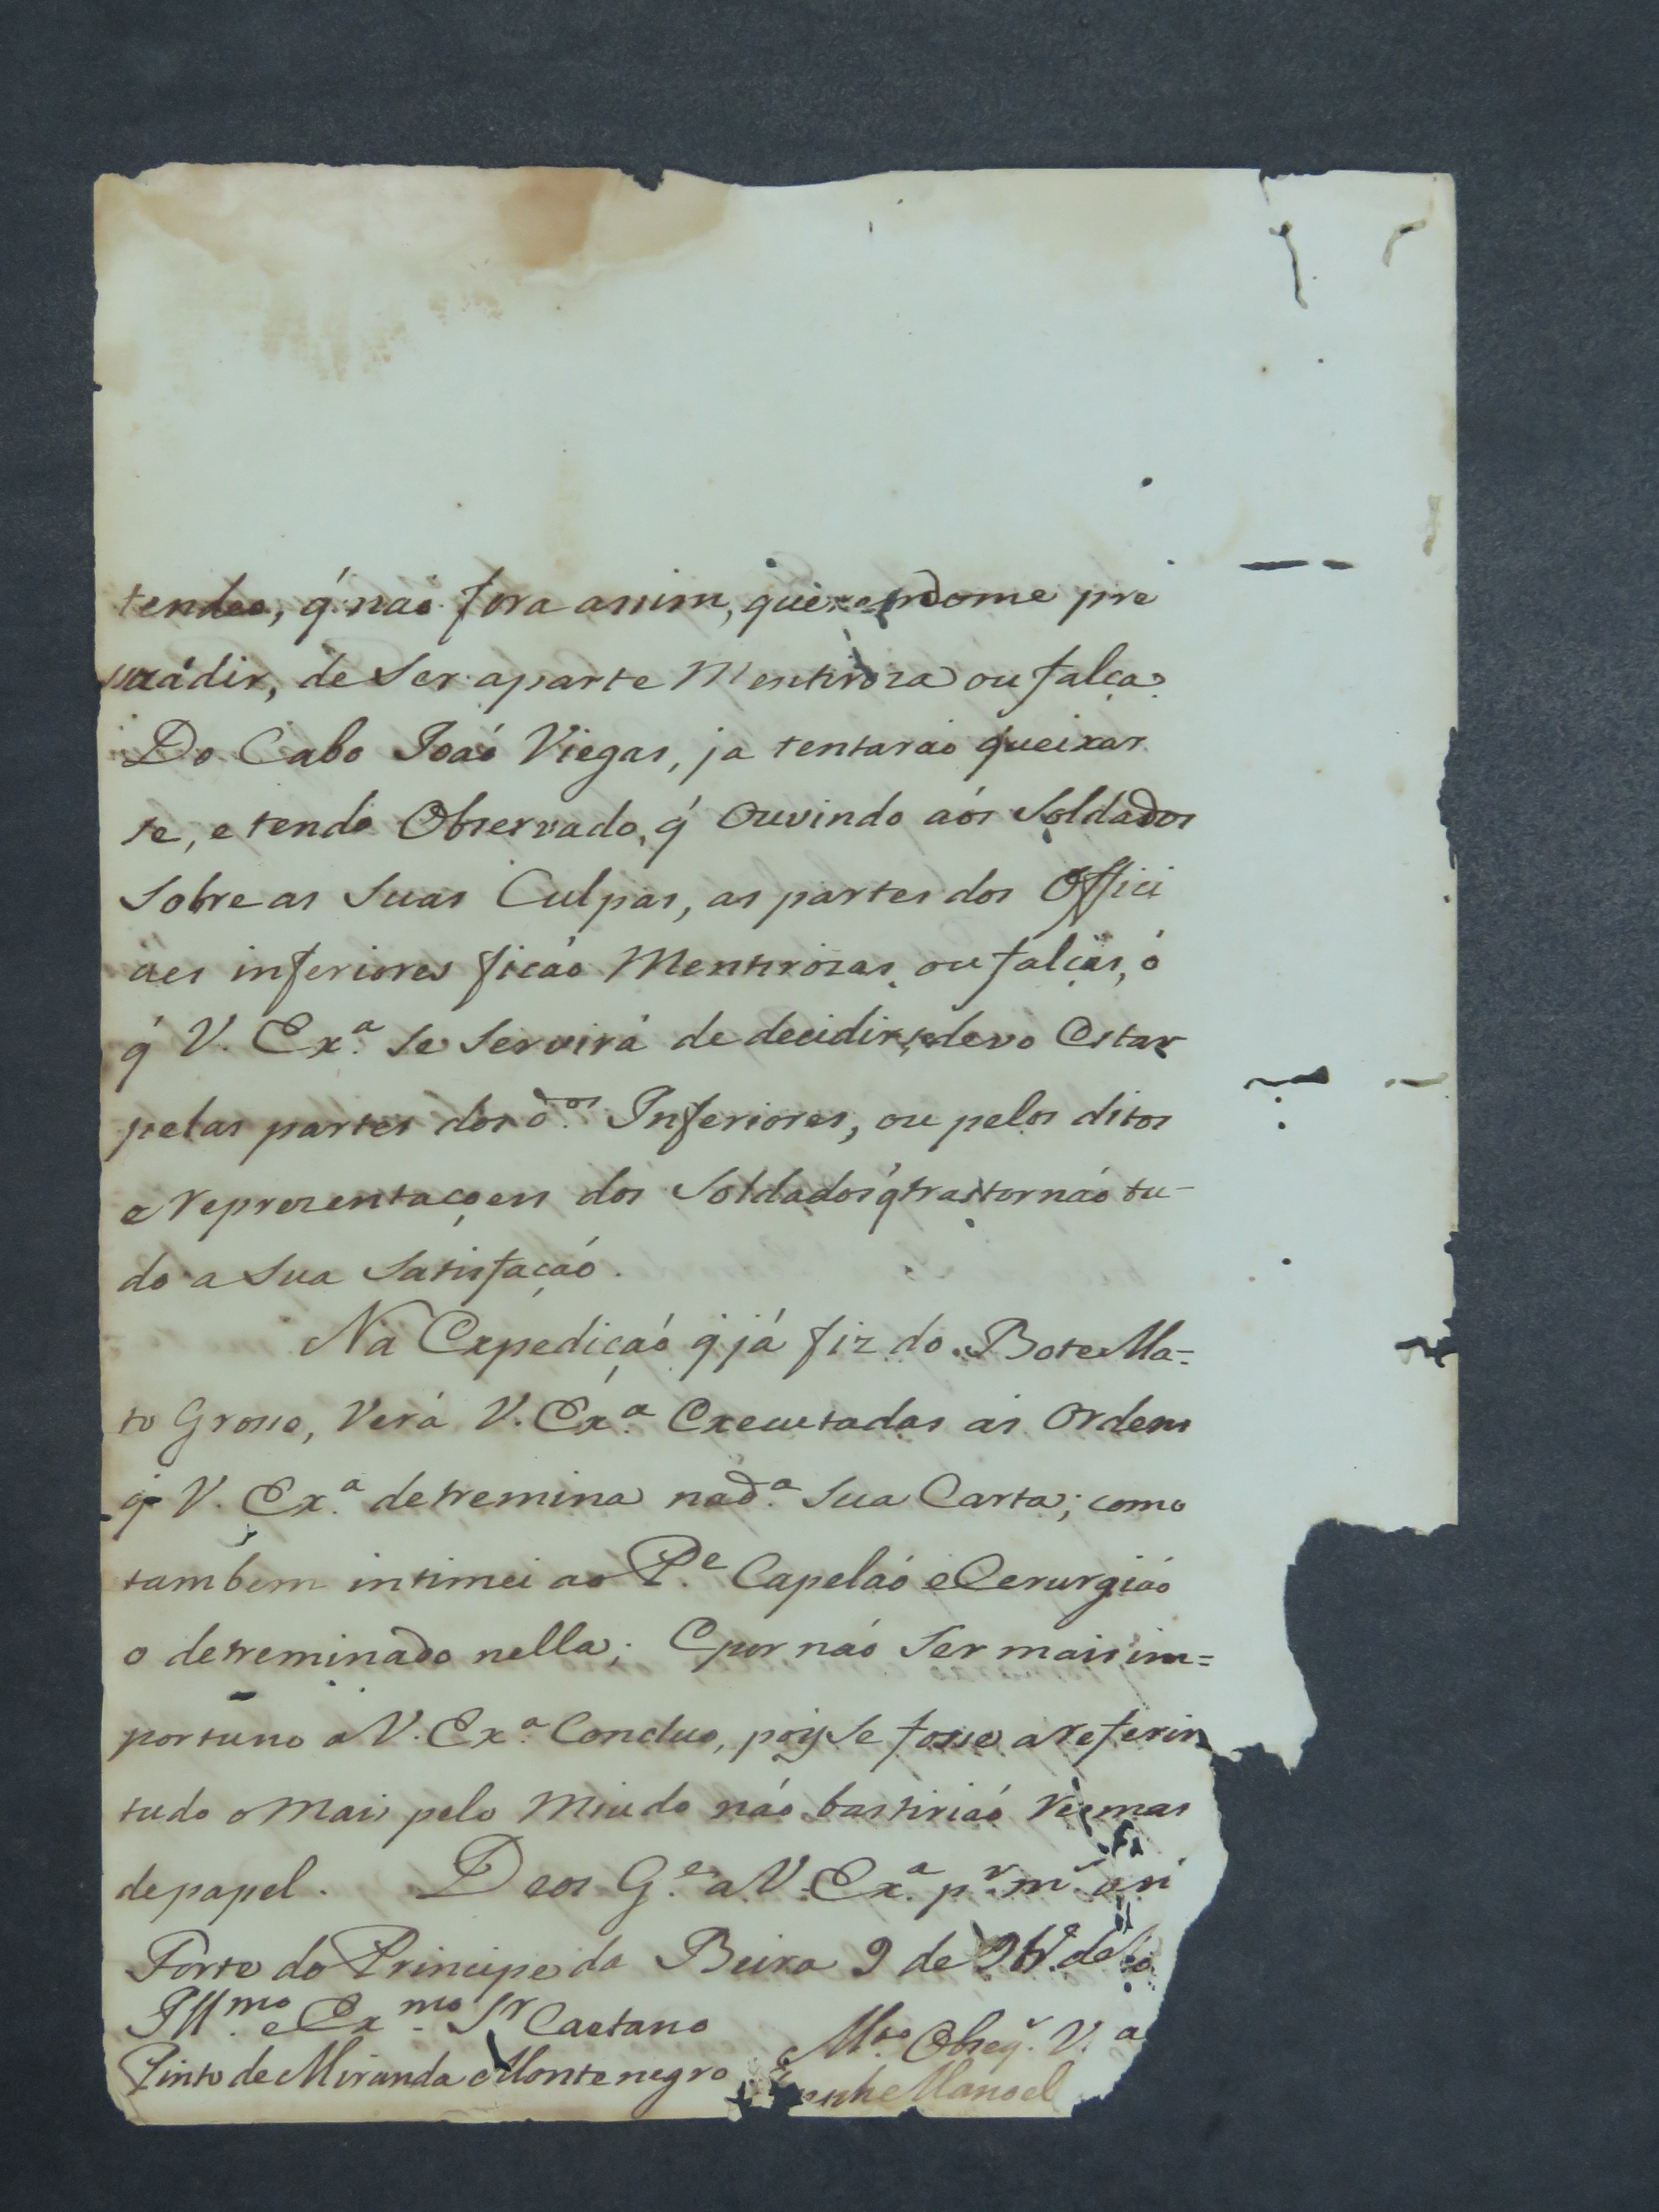 tendeo, q́ naó fora assim, querendome pre
zuádir, de Ser aparte Mentiroza ou falca.
Do Cabo Joaó Viegas, ja tentaraó queixar
se, e tendo Observado, q́ Ouvindo aós Soldados
Sobre as Suas Culpas, as partes dos Offici
aes inferiores ficáo Mentirózas ou falças, ó
q́ V. Ex.ª Se Servirá de decidir, se devo Estar
pelas partes dos d.os Inferiores, ou pelos ditos
e Reprezentaçoens dos Soldados q́ trastornaó tu-
do a Sua Satisfaçaó.
Na Expediçaó q́ já fiz do Bote Ma=
to Grosso, Verá V. Ex.ª Executadas as Ordens
q́ V. Ex.ª detremina na d.ª Sua Carta; como
tambem intimei ao P.e Capeláo e Cerurgiáo
o detreminado nella; E por naó Ser mais im=
portuno a V. Ex.ª Concluo, pois Se fosse a referir
tudo o Mais pelo Miudo náo bastiriaó Resmas
de papel. Deos G.e a V. Ex.ª p.r m.s an
Forte do Principe da Beira 9 de 9br.º de
Ill.mo e Ex.mo Sr Caetano
Pinto de Miranda Montenegro
M.to Obseq.r V. a
Manoel